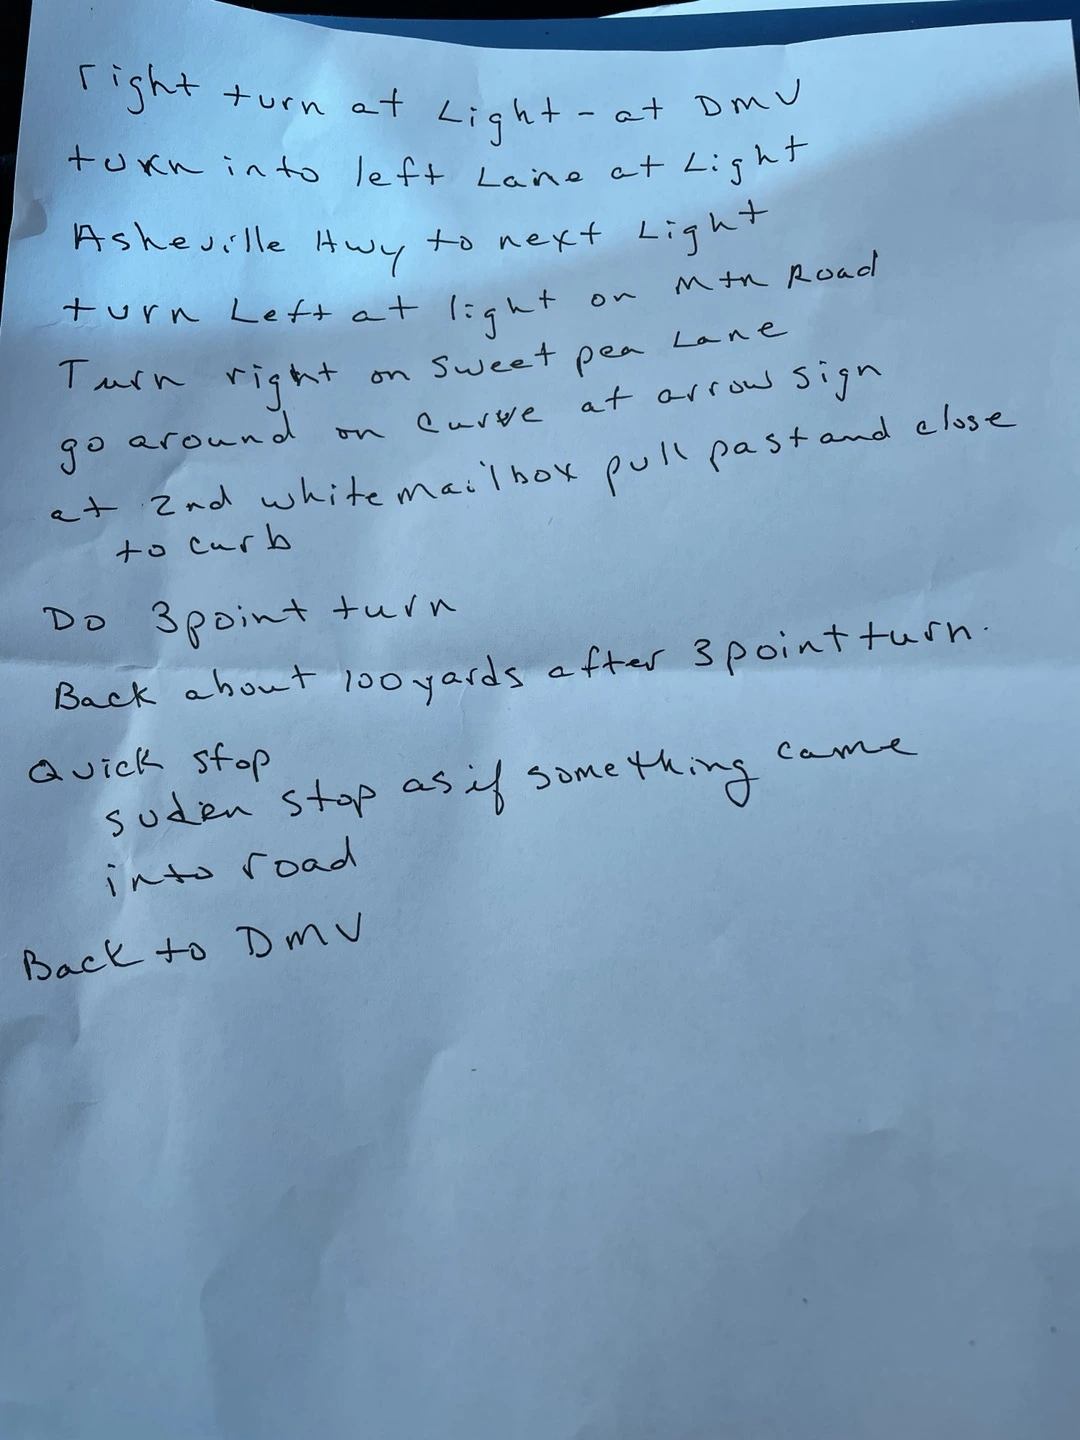 right turn at Light - at DMV
turn into left Lane at Light
Asheville Hwy to next Light
turn Left at light on Mtn Road
Turn right on Sweet pea Lane
go around on Curve at arrow sign
at 2nd white mailbox pull past and close
to curb
Do 3 point turn
Back about 100 yards after 3 point turn.
Quick stop
suden stop as if something came
into road
Back to DMV